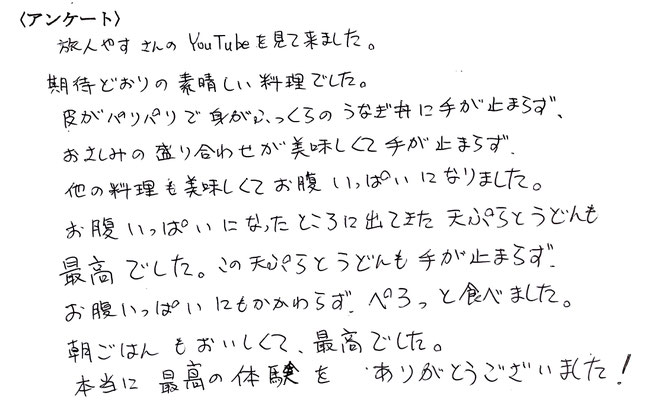 〈アンケート〉
旅人やすさんのYouTubeを見て来ました。
期待どおりの素晴しい料理でした。
皮がパリパリで身がふっくらのうなぎ丼に手が止まらず、
おさしみの盛り合わせが美味しくて手が止まらず、
他の料理も美味しくてお腹いっぱいになりました。
お腹いっぱいになったところに出てきた天ぷらとうどんも
最高でした。この天ぷらとうどんも手が止まらず、
お腹いっぱいにもかかわらず、ぺろっと食べました。
朝ごはんもおいしくて、最高でした。
本当に最高の体験をありがとうございました！